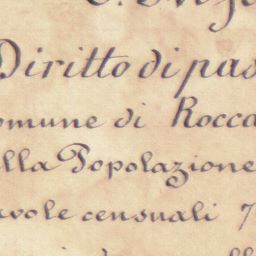 Diritto di pas
omune di Rocca
lla Popolazione
avole censuali 7